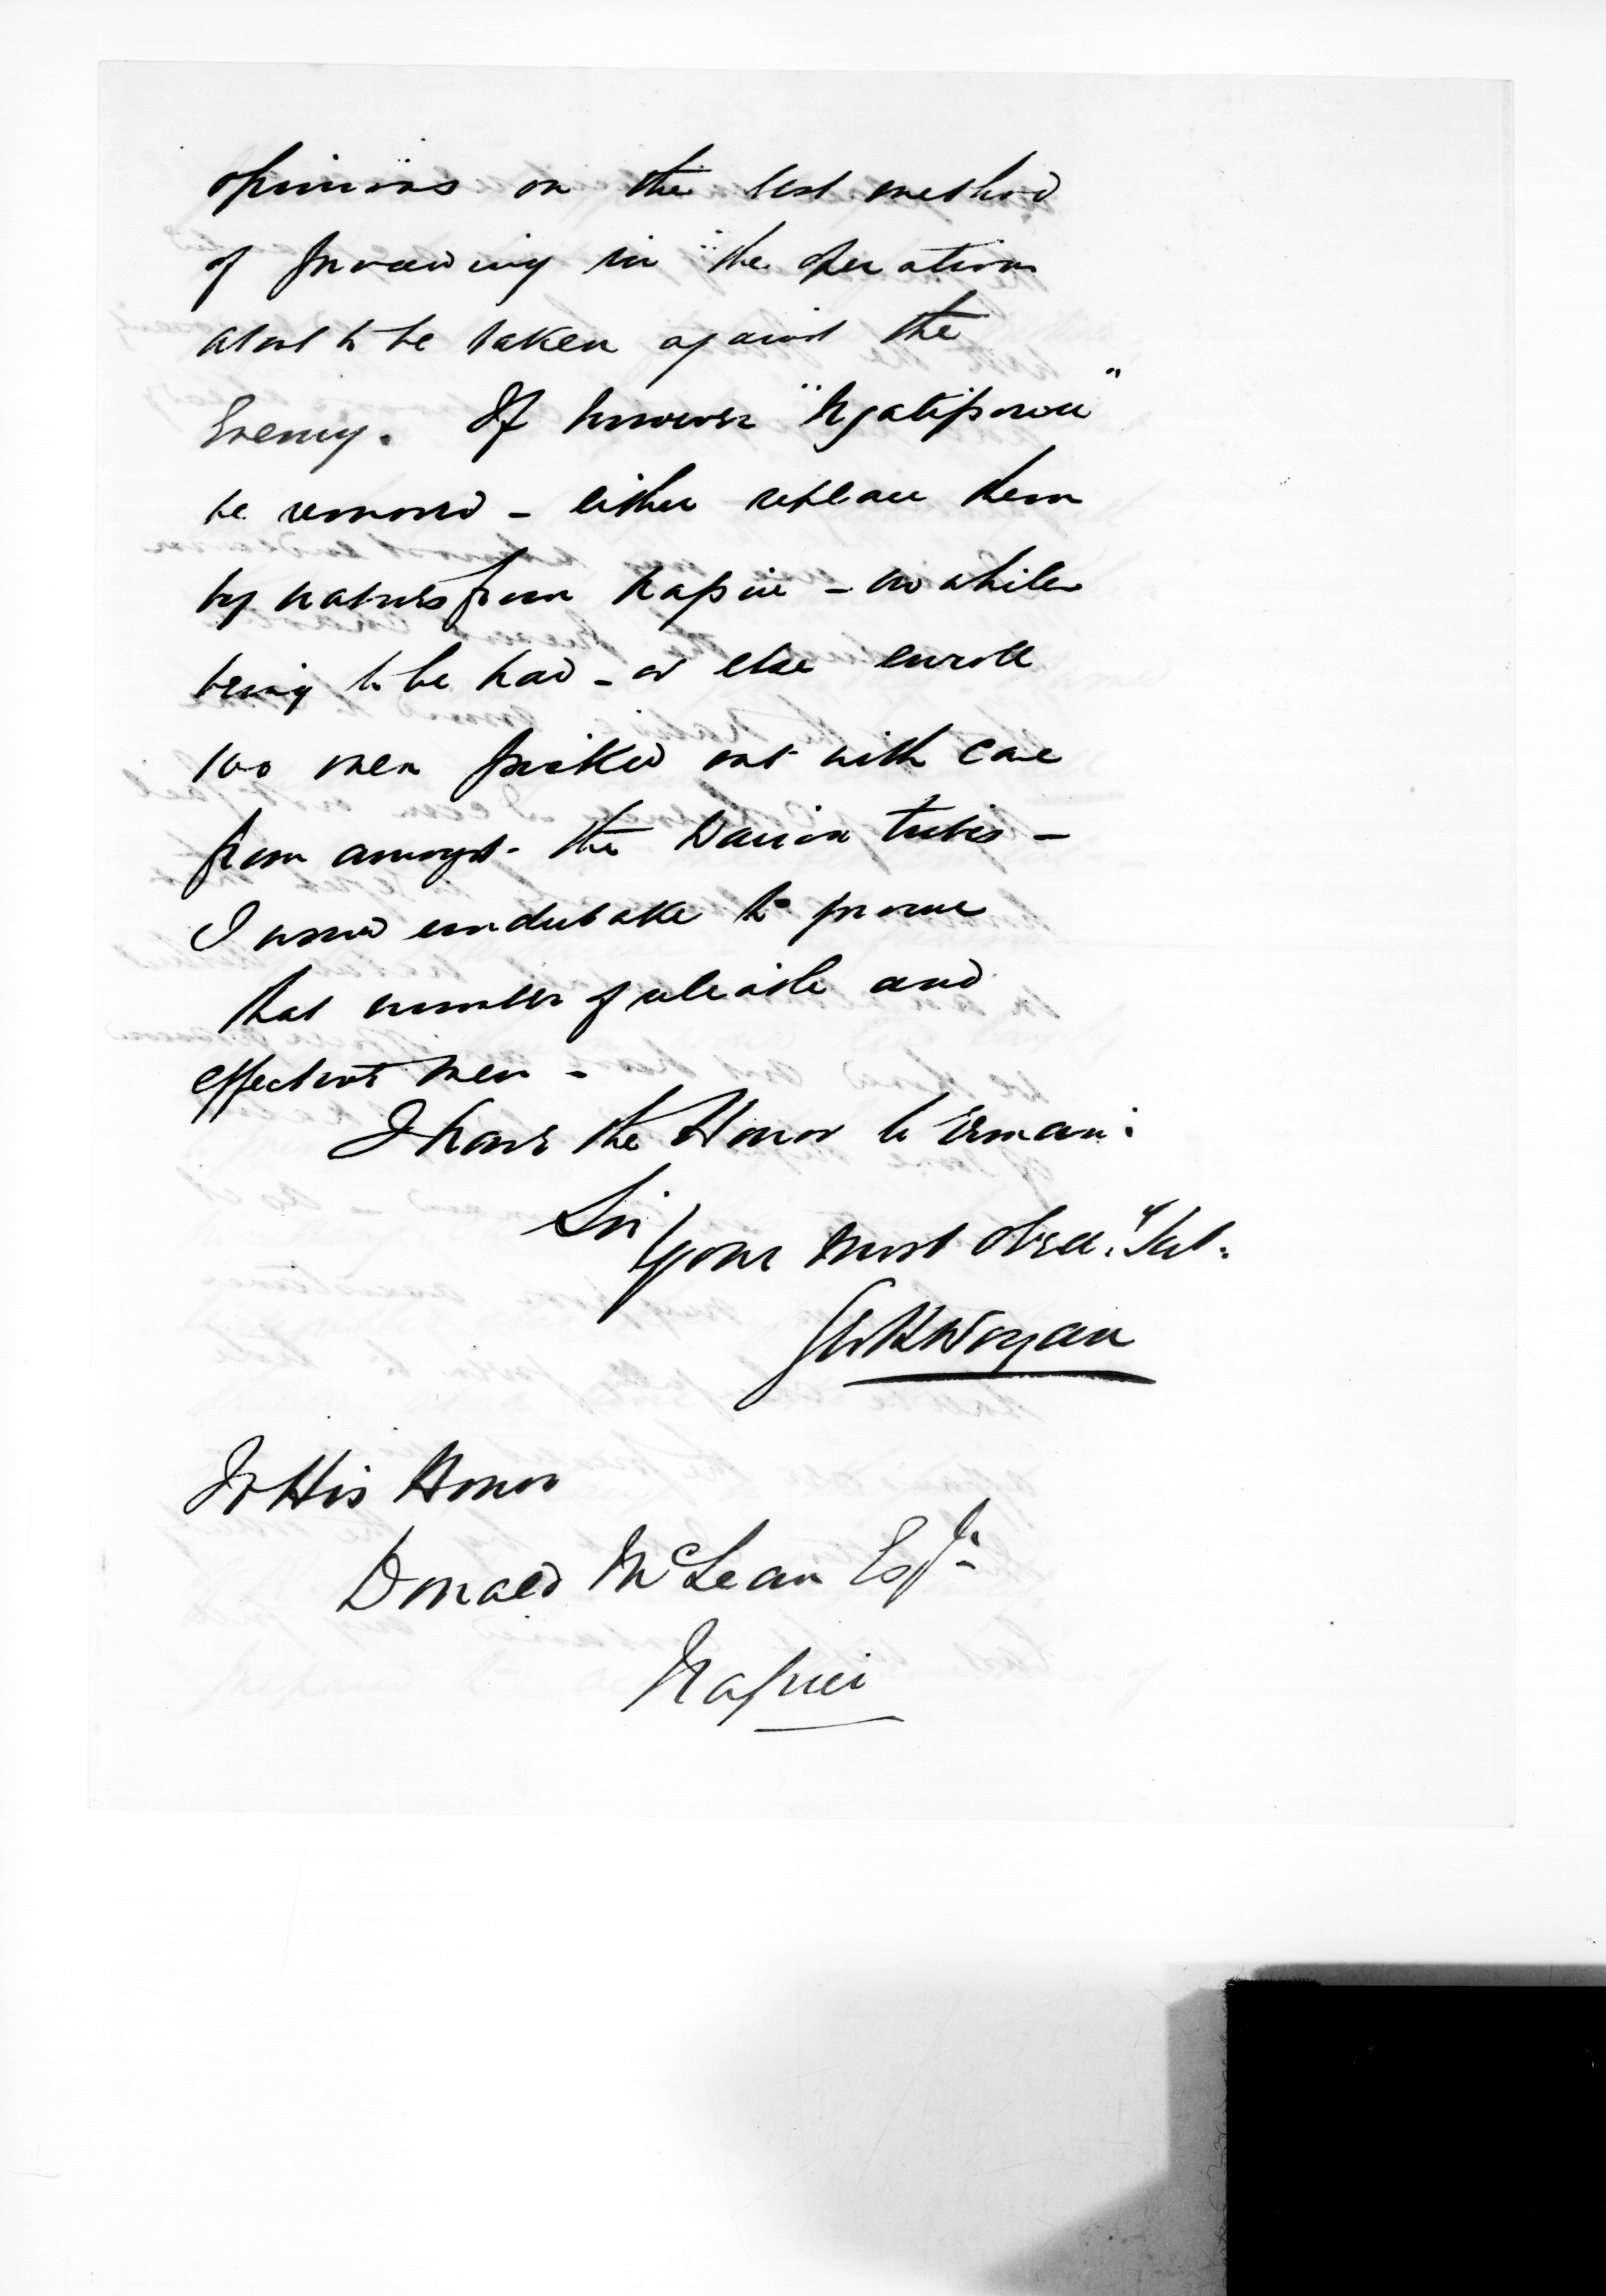 opinions on the best method
of proceeding in the operations
about to be taken against the
Enemy. If however "Ngatiporou"
be removed - either replace them
by natives from Napier - no whites
being to be had - or else enroll
100 men picked out with care
from amongst the various tribes -
I would undertake to procure
that number of reliable and
effective men -
I have the Honor to remain:
Sir
Your most obed.t Svt.
To His Honor
Donald McLean Esqr.
Napier